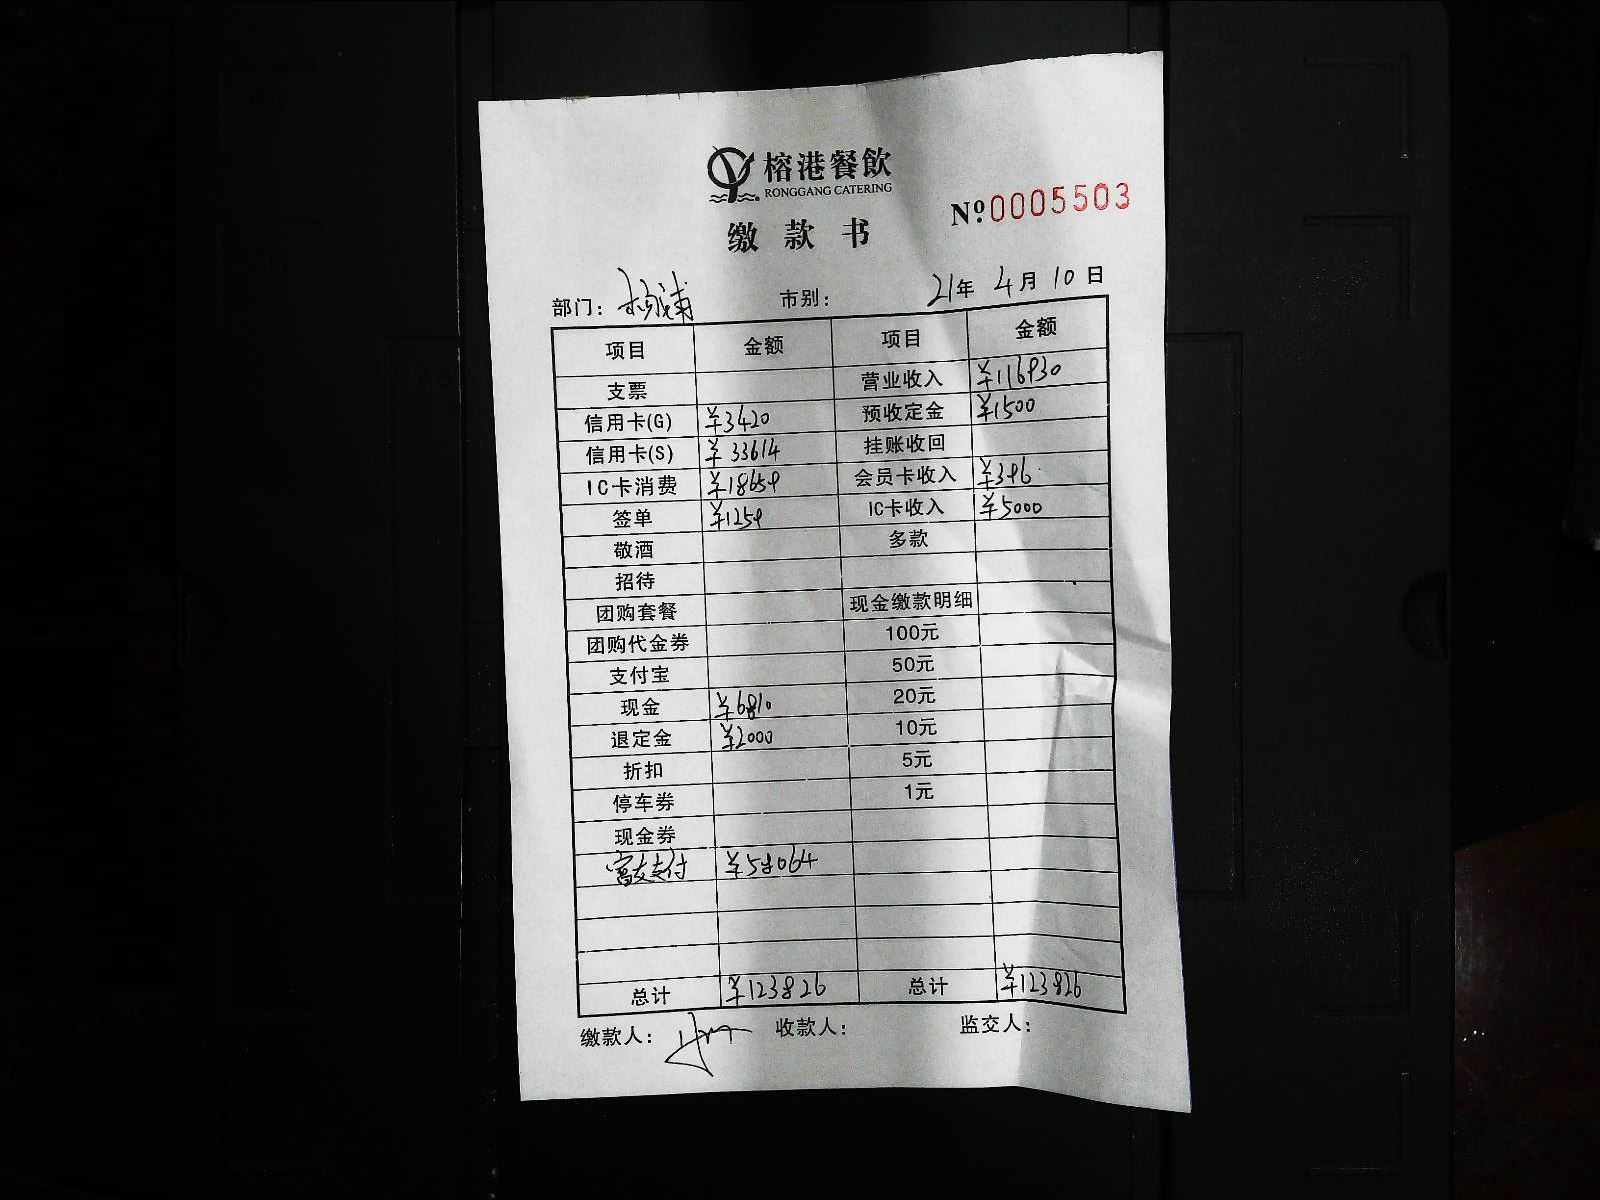 榕港餐飲
RONGGANG CATERING
缴款书
Nº:0005503
部门：杨浦 市别： 21年 4月 10日
项目 金额 项目 金额
支票 营业收入 ¥116930
信用卡(G) ¥3420 预收定金 ¥1500
信用卡(S) ¥33614 挂账收回
IC卡消费 ¥18659 会员卡收入 ¥396
签单 ¥1259 IC卡收入 ¥5000
敬酒 多款
招待
团购套餐 现金缴款明细
团购代金券 100元
支付宝 50元
现金 ¥6810 20元
退定金 ¥2000 10元
折扣 5元
停车券 1元
现金券
富友支付 ¥58064
总计 ¥123826 总计 ¥123826
缴款人： 收款人： 监交人：